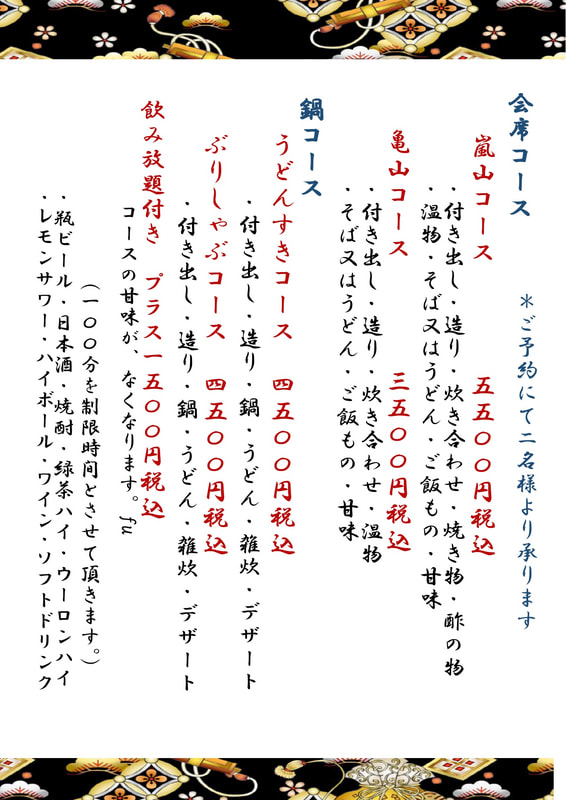 会席コース ＊ご予約にて二名様より承ります
嵐山コース 五五〇〇円税込
・付き出し・造り・炊き合わせ・焼き物・酢の物
・温物・そば又はうどん・ご飯もの・甘味
亀山コース 三五〇〇円税込
・付き出し・造り・炊き合わせ・温物
・そば又はうどん・ご飯もの・甘味
鍋コース
うどんすきコース 四五〇〇円税込
・付き出し・造り・鍋・うどん・雑炊・デザート
ぶりしゃぶコース 四五〇〇円税込
・付き出し・造り・鍋・うどん・雑炊・デザート
飲み放題付き プラス一五〇〇円税込
コースの甘味が、なくなります。fu
（一〇〇分を制限時間とさせて頂きます。）
・瓶ビール・日本酒・焼酎・緑茶ハイ・ウーロンハイ
・レモンサワー・ハイボール・ワイン・ソフトドリンク